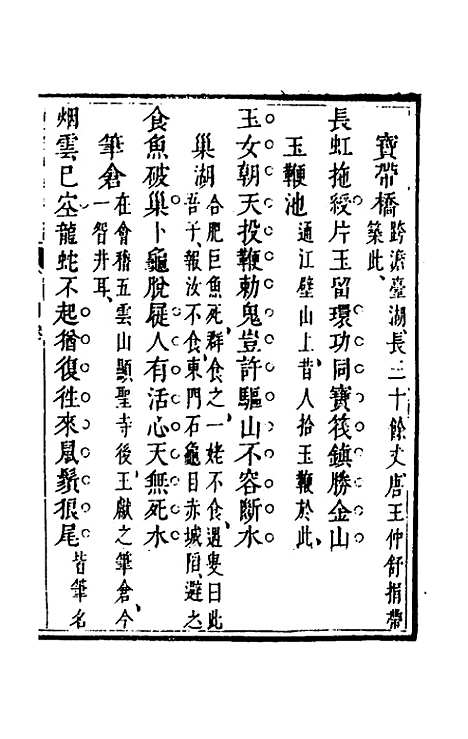 寶帶橋 跨澹臺湖長三十餘丈唐王仲舒捐帶
築此、
長虹拖綬片玉留環功同寶筏鎮勝金山
玉鞭池 通江壁山上昔人拾玉鞭於此、
玉女朝天投鞭勅鬼豈許驅山不容斷水
巢湖 合肥巨魚死群食之一姥不食遇叟曰此
吾子、報汝不食東門石龜目赤城陷避之、
食魚破巢卜龜脫屣人有活心天無死水
筆倉 在會稽五雲山顯聖寺後王獻之筆倉今
一智井耳、
烟雲已空龍蛇不起猶復往來鼠鬚狼尾 皆筆名